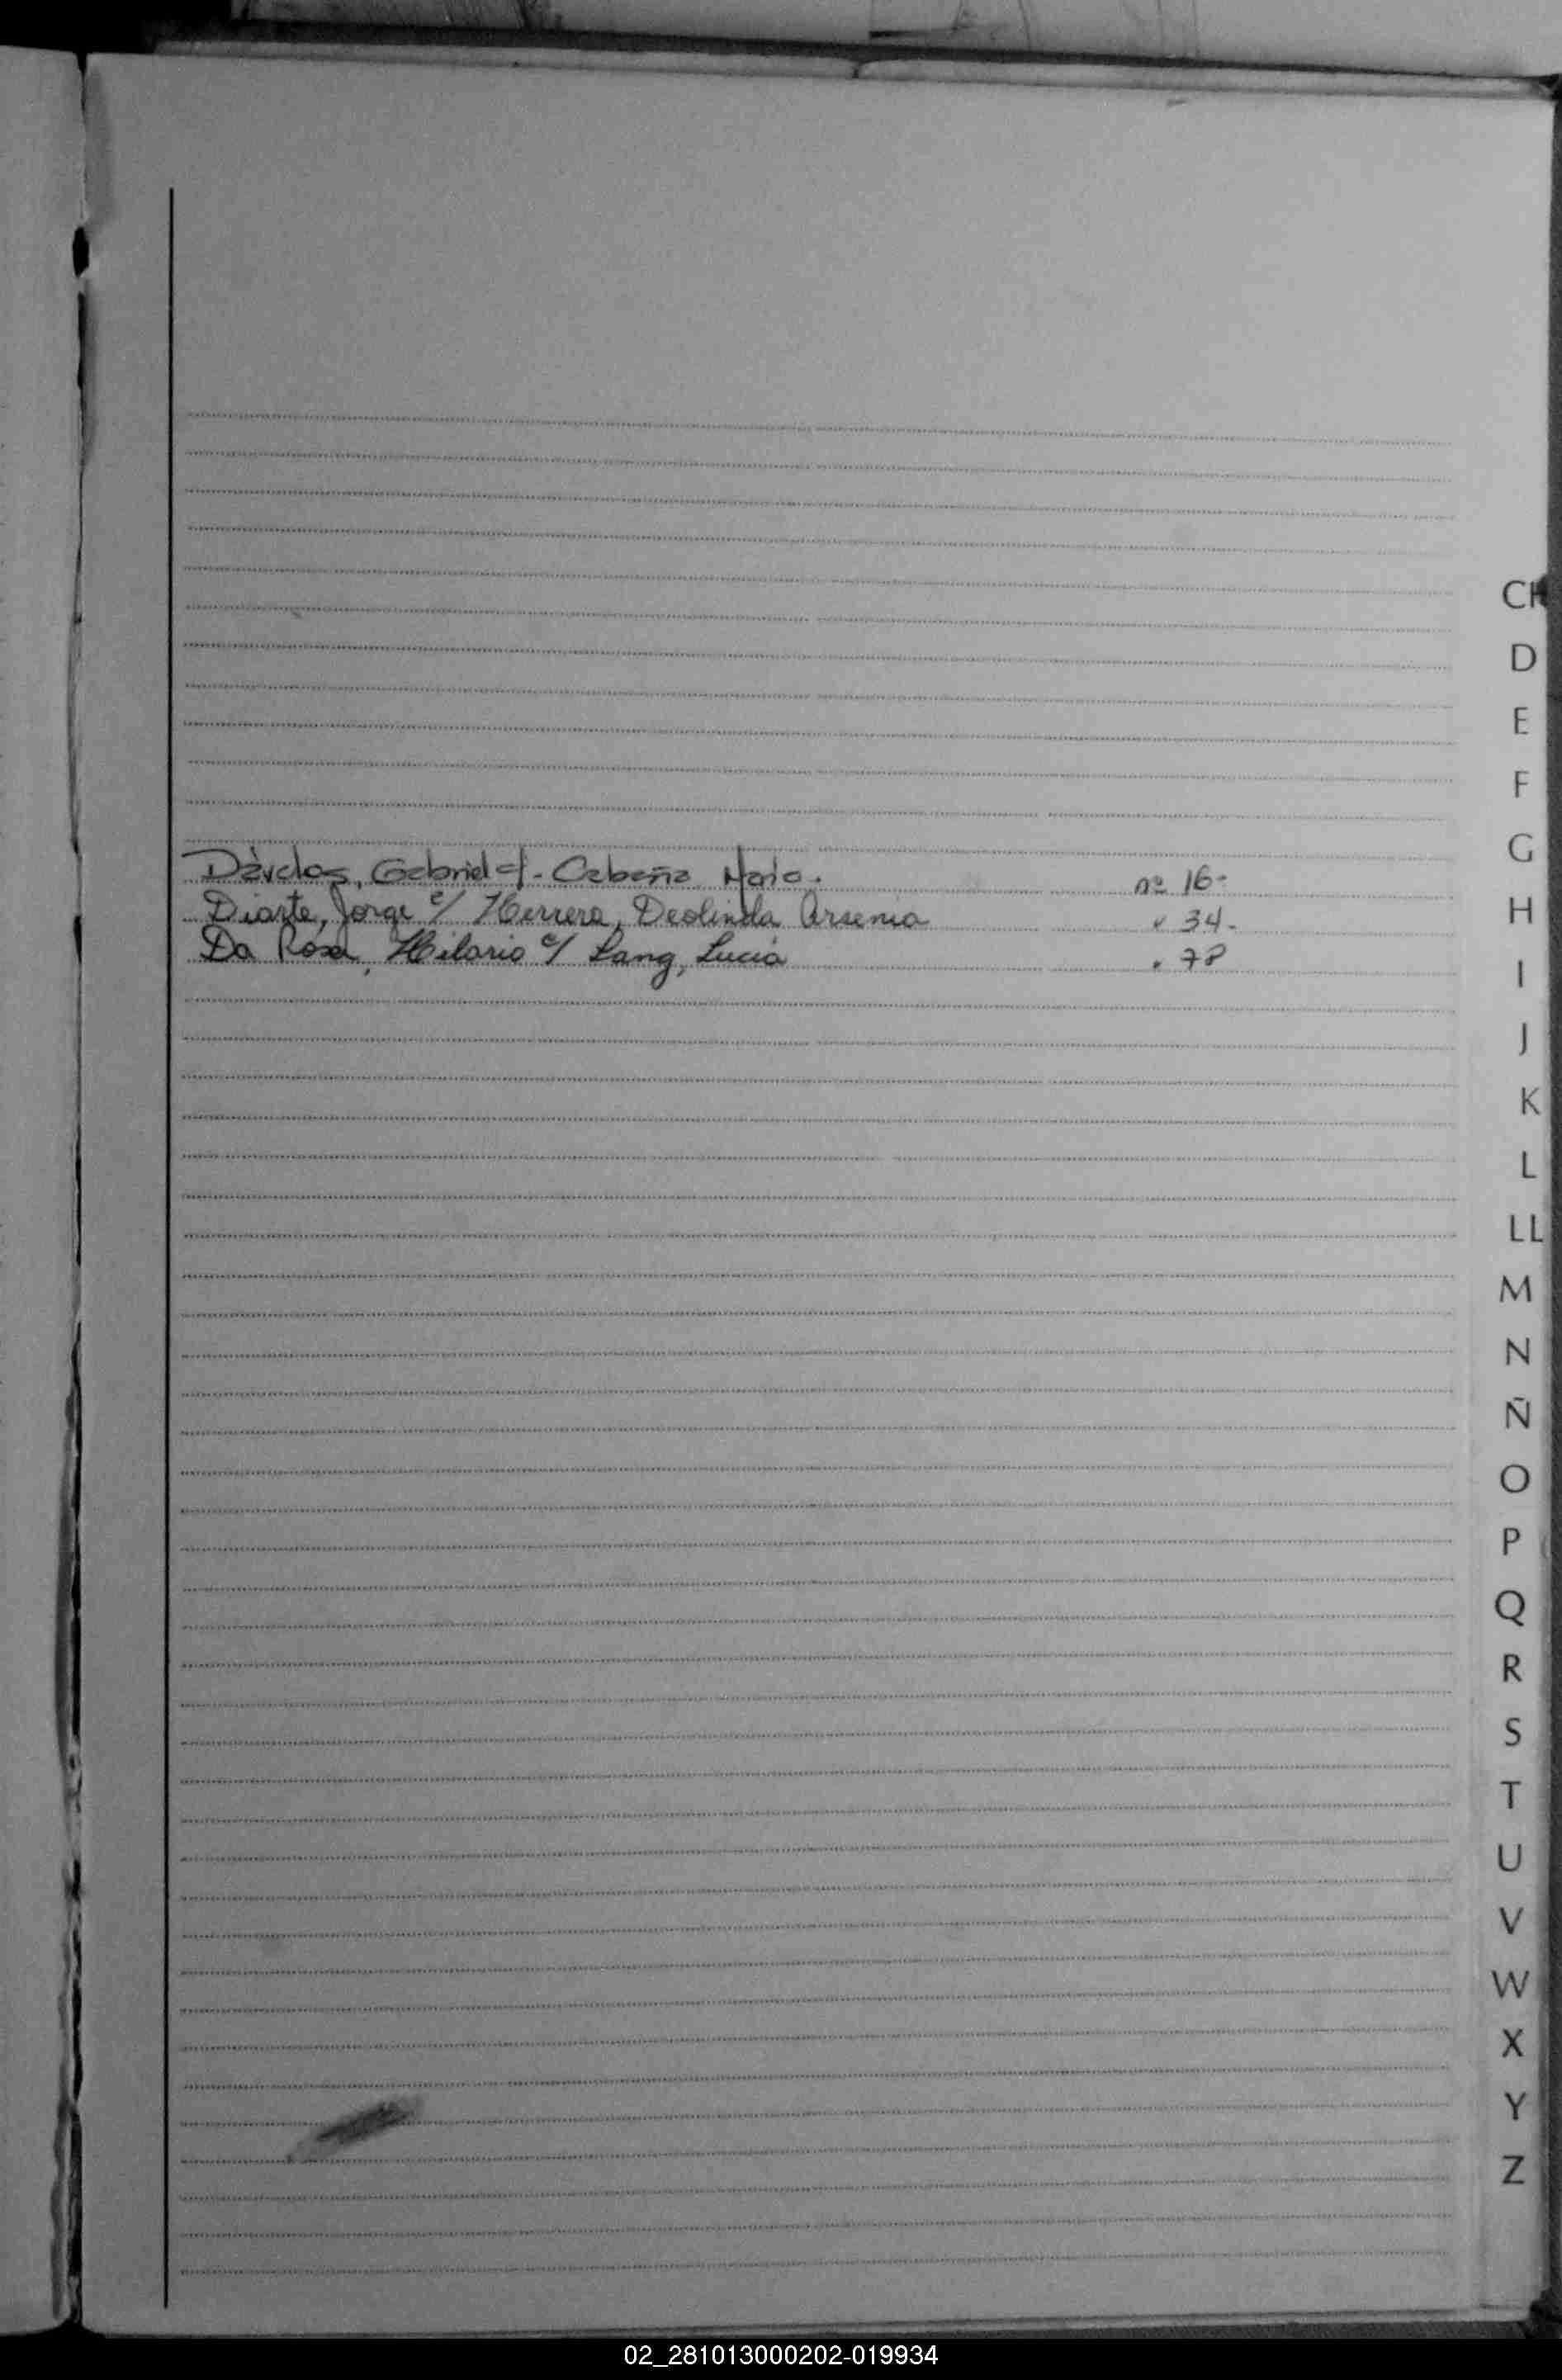 Dávalos, Gabriel c/. Cabaña María. nº 16-
Diarte, Jorge c/ Herrera, Deolinda Arsenia " 34-
Da Rosa, Hilario c/ Lang, Lucia " 78
CH
D
E
F
G
H
I
J
K
L
LL
M
N
Ñ
O
P
Q
R
S
T
U
V
W
X
Y
Z
02_281013000202-019934